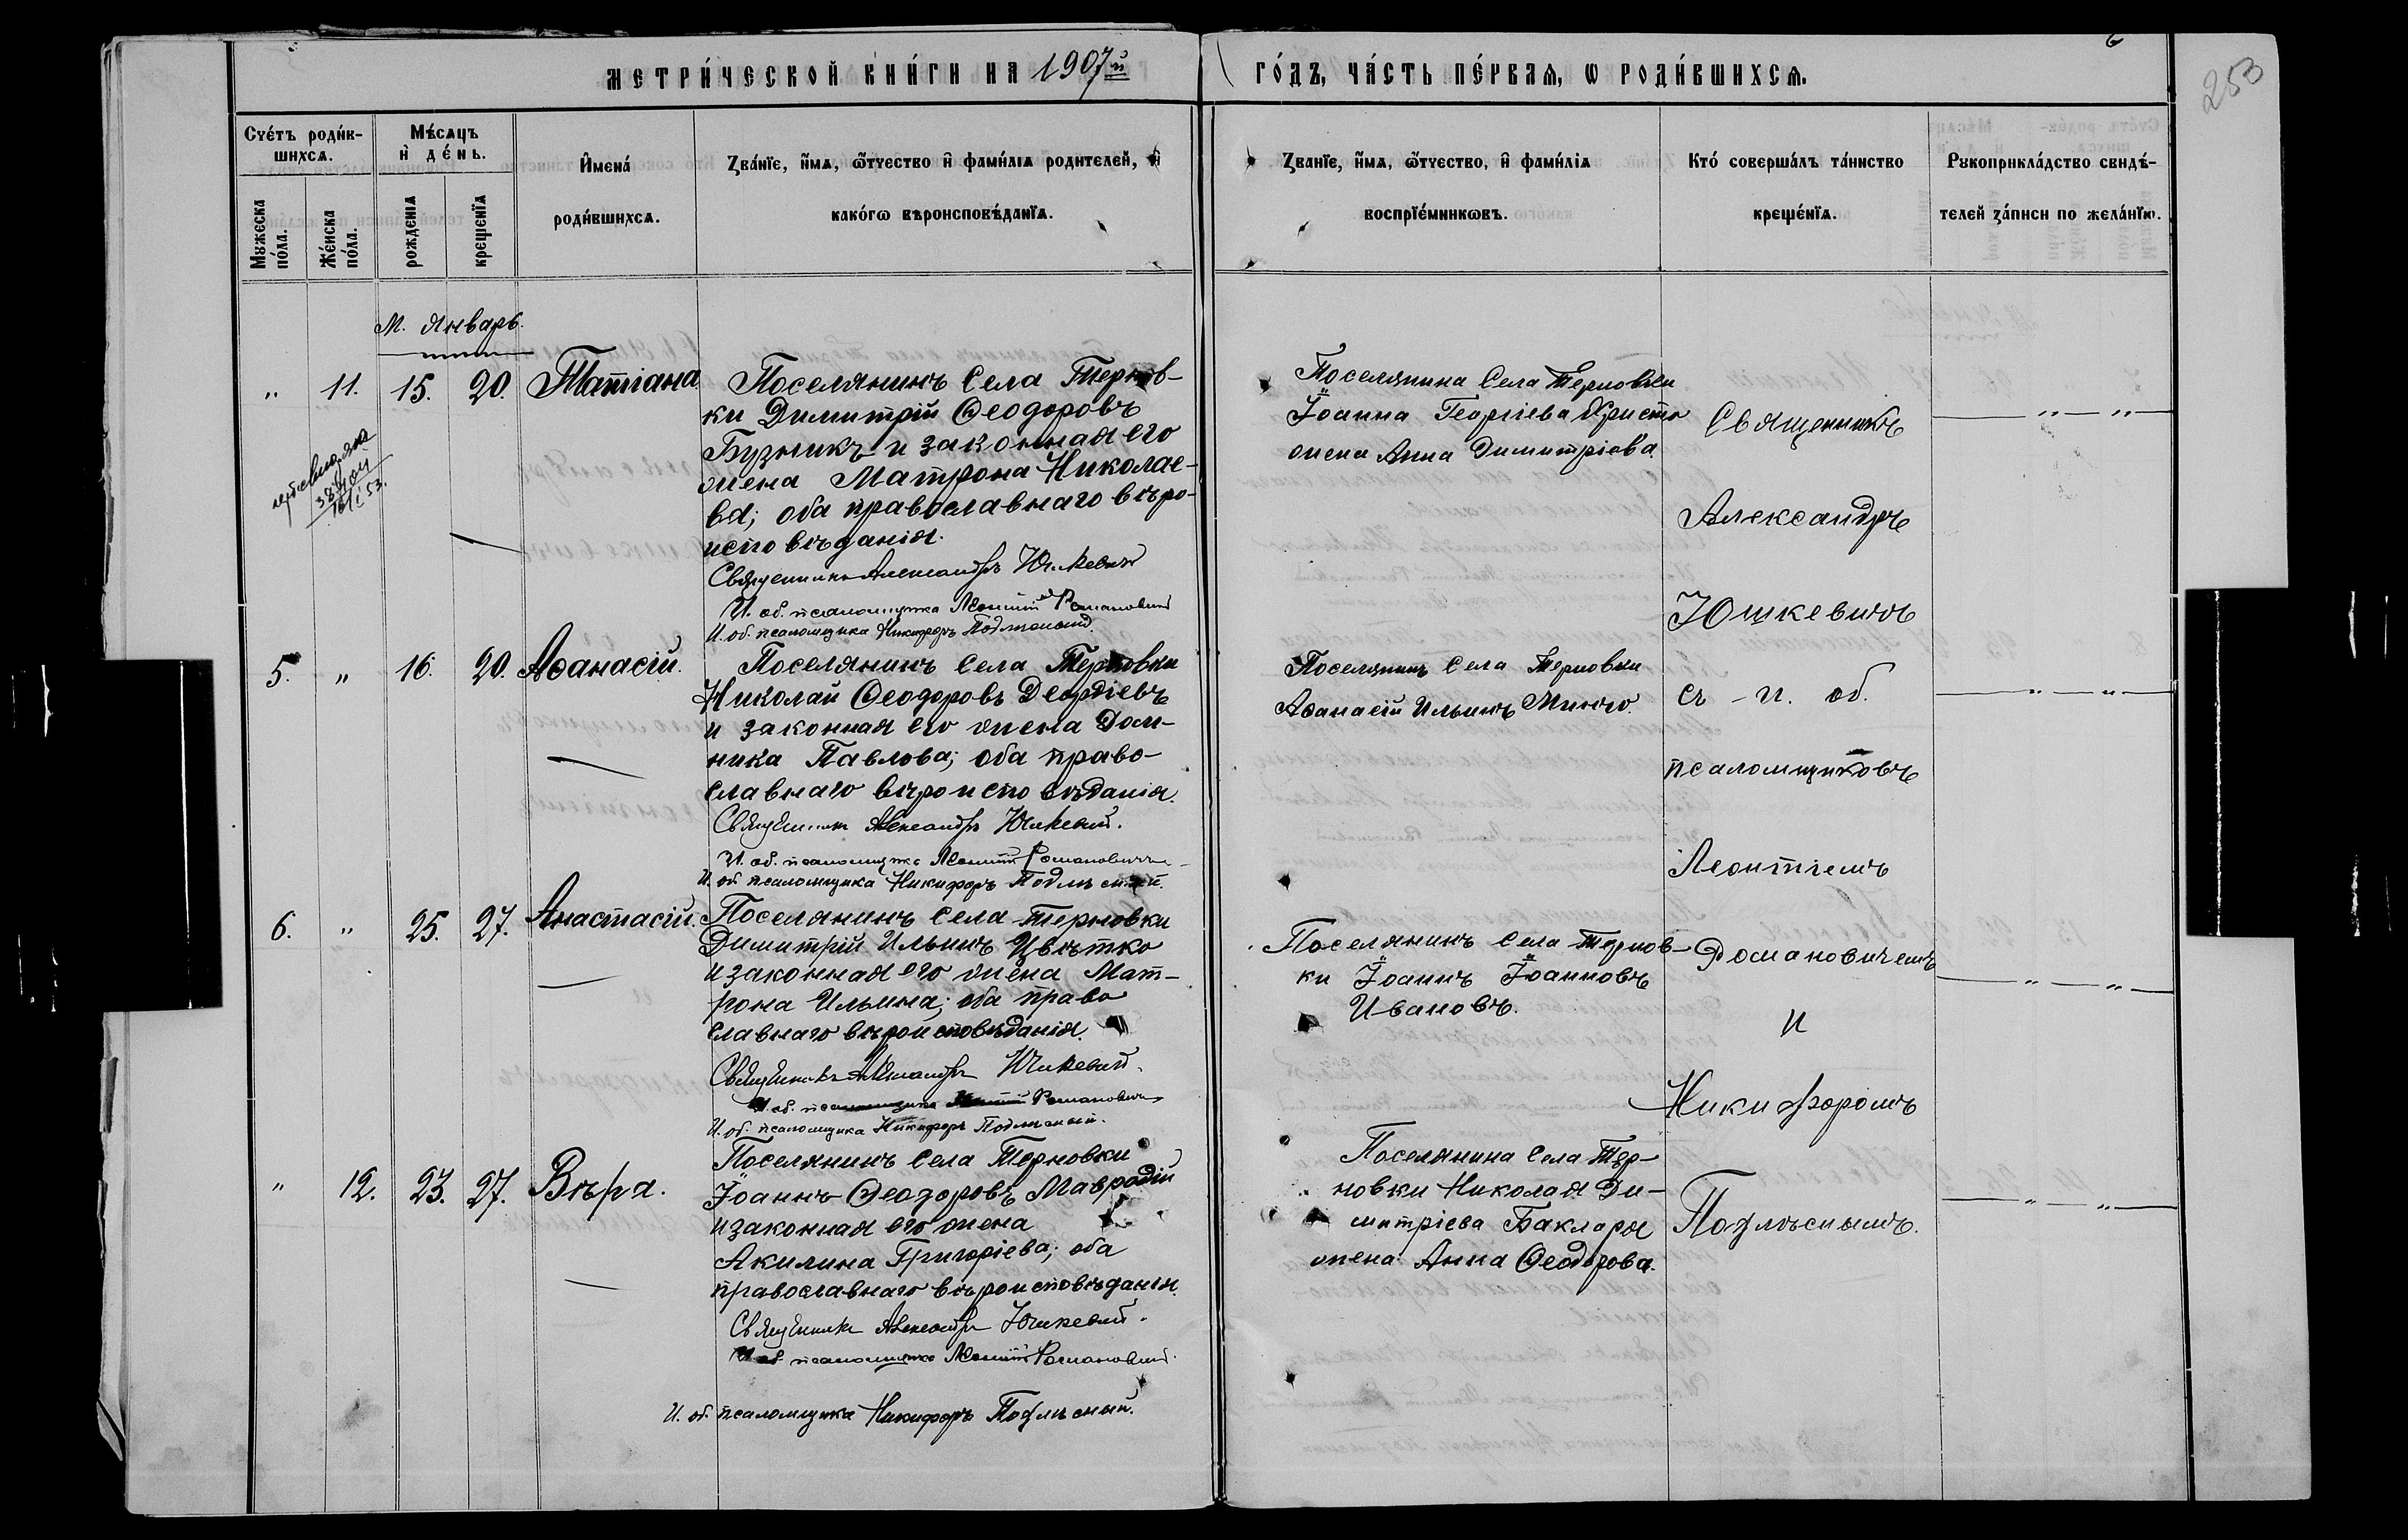 МЕТРИ́ЧЕСКОЙ КНИ́ГИ НА 1907й
ГО́ДЪ, ЧА́СТЬ ПЕ́РВАѦ, Ѡ РОДИ́ВШИХСѦ.
253
Счéтъ роди́в-
шихсѧ.
Мꙋжеска
по́ла.
Же́нска
по́ла.
Мѣ́сѧцъ
и҆ де́нь.
рожденїѧ
крещенїѧ
И҆мена́
роди́вшихсѧ.
Зва́нїе, и҆́мѧ, ѻ҆́тчество и҆ фами́лїѧ родителей, и҆
како́гѡ вѣроисповѣ́данїѧ.
Званїе, и҆́мѧ, ѻ҆́тчество, и҆ фами́лїѧ
воспрїе́мникѡвъ.
Кто́ соверша́лъ та́инство
креще́нїѧ.
Рꙋкоприкла́дство свидѣ́-
телей за́писи по жела́нїю.
М. Январь.
" 11. 15. 20. Татіана
Поселянинъ Села Тернов-
ки Димитрій Ѳеодоровъ
Бузникъ и законная его
жена Матрона Николае-
ва; оба православнаго вѣро-
исповѣданія.
Священникъ Александръ Юшкевичъ
И. об. псаломщика Леонтій Романовичъ
И. об. псаломщика Никифоръ Подлѣсный.
Поселянина Села Терновки
Іоанна Георгіева Христо
жена Анна Димитріева.
5. " 16. 20. Аѳанасій.
Поселянинъ Села Терновки
Николай Ѳеодоровъ Деордіевъ
и законная его жена Дом-
ника Павлова; оба право-
славнаго вѣроисповѣданія.
Священникъ Александръ Юшкевичъ.
И. об. псаломщика Леонтій Романовичъ
И. об. псаломщика Никифоръ Подлѣсный.
Поселянинъ Села Терновки
Аѳанасій Ильинъ Минчо.
6. " 25. 27. Анастасій.
Поселянинъ Села Терновки
Димитрій Ильинъ Цвѣтко
и законная его жена Мат-
рона Ильина; оба право
славнаго вѣроисповѣданія.
Священникъ Александръ Юшкевичъ.
И. об. псаломщика Леонтій Романовичъ
И. об. псаломщика Никифоръ Подлѣсный.
Поселянинъ Села Тернов-
ки Іоаннъ Іоанновъ
Ивановъ.
" 12. 23. 27. Вѣра.
Поселянинъ Села Терновки
Іоаннъ Ѳеодоровъ Мавродій
и законная его жена
Акилина Григоріева; оба
православнаго вѣроисповѣданія.
Священникъ Александръ Юшкевичъ.
И. об. псаломщика Леонтій Романовичъ.
И. об. псаломщика Никифоръ Подлѣсный.
Поселянина Села Тер-
новки Николая Ди-
митріева Бакларя
жена Анна Ѳеодорова.
Священникъ
Александръ
Юшкевичъ
съ и. об.
псаломщиковъ
Леонтіемъ
Романовичемъ
и
Никифоромъ
Подлѣснымъ.